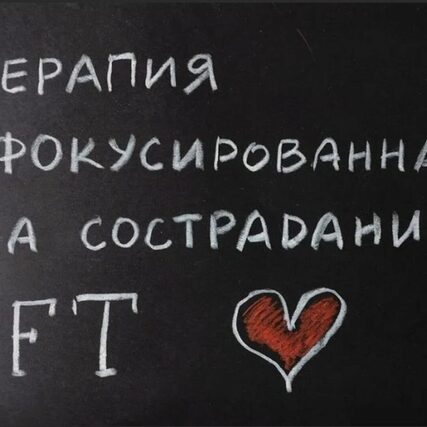 ЕРАПИЯ
ФОКУСИРОВАННА
А СОСТРАДАНИ
FT